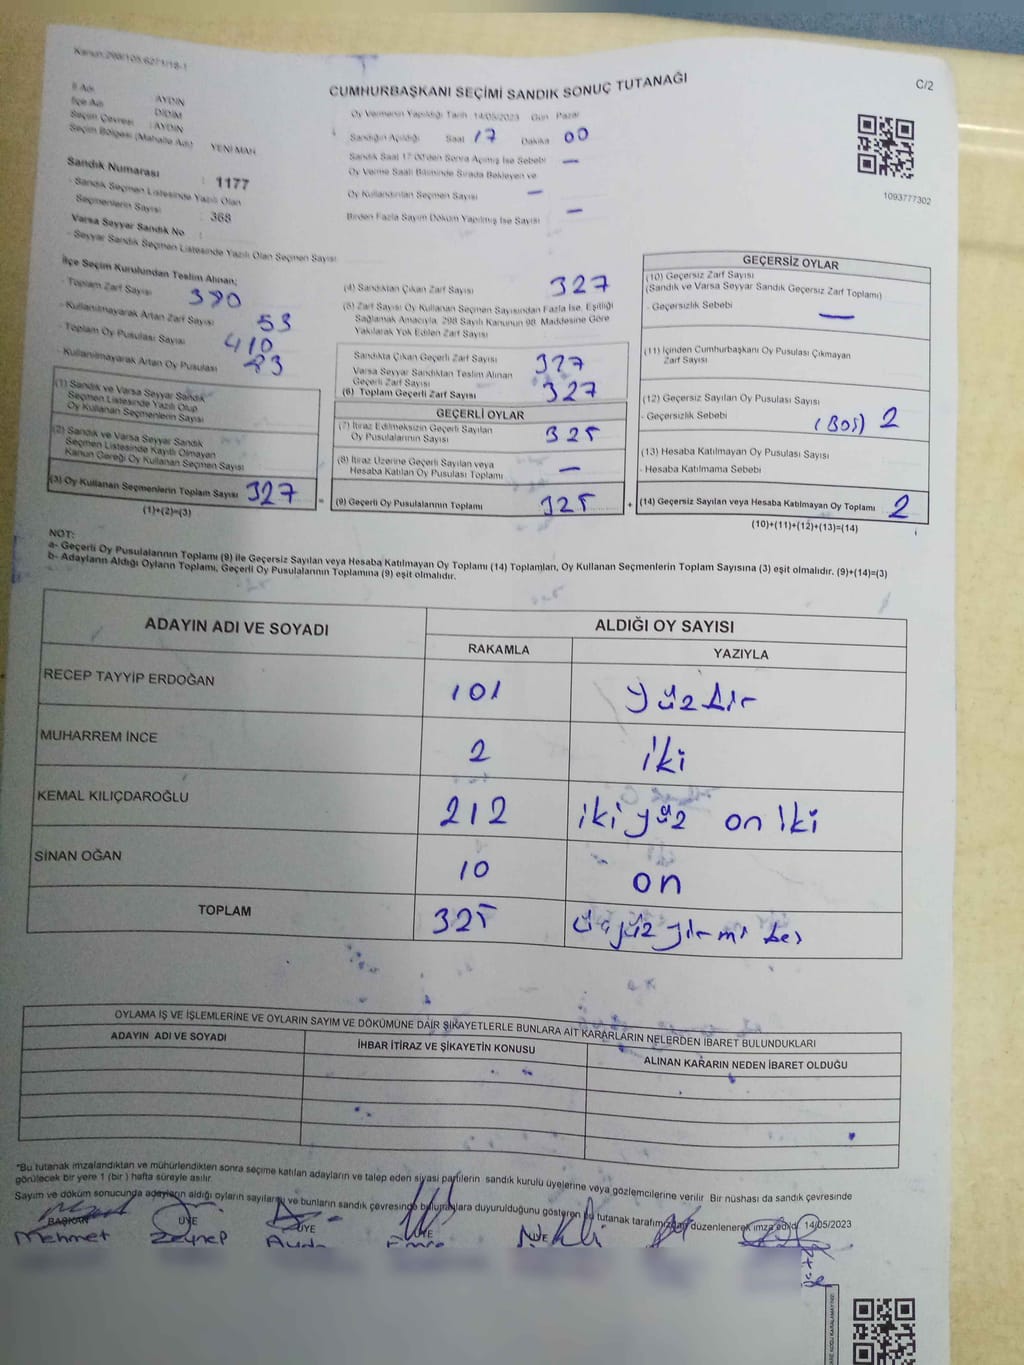 Kanun:298/103.6271/18-1
C/2
CUMHURBAŞKANI SEÇİMİ SANDIK SONUÇ TUTANAĞI
İl Adı AYDIN
İlçe Adı DİDİM
Seçim Çevresi : AYDIN
Seçim Bölgesi (Mahalle Adı) YENİ MAH
Sandık Numarası : 1177
- Sandık Seçmen Listesinde Yazılı Olan
Seçmenlerin Sayısı : 368
Varsa Seyyar Sandık No :
- Seyyar Sandık Seçmen Listesinde Yazılı Olan Seçmen Sayısı
Oy Vermenin Yapıldığı Tarih 14/05/2023 Gün Pazar
Sandığın Açıldığı Saat 17 Dakika 00
Sandık Saat 17:00'den Sonra Açılmış İse Sebebi —
Oy Verme Saati Bitiminde Sırada Bekleyen ve
Oy Kullandırılan Seçmen Sayısı —
Birden Fazla Sayım Döküm Yapılmış İse Sayısı —
1093777302
İlçe Seçim Kurulundan Teslim Alınan;
- Toplam Zarf Sayısı 380
- Kullanılmayarak Artan Zarf Sayısı 53
- Toplam Oy Pusulası Sayısı 410
- Kullanılmayarak Artan Oy Pusulası 83
(1) Sandık ve Varsa Seyyar Sandık
Seçmen Listesinde Yazılı Olup
Oy Kullanan Seçmenlerin Sayısı
(2) Sandık ve Varsa Seyyar Sandık
Seçmen Listesinde Kayıtlı Olmayan
Kanun Gereği Oy Kullanan Seçmen Sayısı
(3) Oy Kullanan Seçmenlerin Toplam Sayısı 327
(1)+(2)=(3)
(4) Sandıktan Çıkan Zarf Sayısı 327
(5) Zarf Sayısı Oy Kullanan Seçmen Sayısından Fazla İse, Eşitliği
Sağlamak Amacıyla, 298 Sayılı Kanunun 98. Maddesine Göre
Yakılarak Yok Edilen Zarf Sayısı
Sandıkta Çıkan Geçerli Zarf Sayısı 327
Varsa Seyyar Sandıktan Teslim Alınan
Geçerli Zarf Sayısı —
(6) Toplam Geçerli Zarf Sayısı 327
GEÇERLİ OYLAR
(7) İtiraz Edilmeksizin Geçerli Sayılan
Oy Pusulalarının Sayısı 325
(8) İtiraz Üzerine Geçerli Sayılan veya
Hesaba Katılan Oy Pusulası Toplamı —
= (9) Geçerli Oy Pusulalarının Toplamı 325 +
GEÇERSİZ OYLAR
(10) Geçersiz Zarf Sayısı
(Sandık ve Varsa Seyyar Sandık Geçersiz Zarf Toplamı)
- Geçersizlik Sebebi —
(11) İçinden Cumhurbaşkanı Oy Pusulası Çıkmayan
Zarf Sayısı
(12) Geçersiz Sayılan Oy Pusulası Sayısı
- Geçersizlik Sebebi (BOŞ) 2
(13) Hesaba Katılmayan Oy Pusulası Sayısı
- Hesaba Katılmama Sebebi
(14) Geçersiz Sayılan veya Hesaba Katılmayan Oy Toplamı 2
(10)+(11)+(12)+(13)=(14)
NOT:
a- Geçerli Oy Pusulalarının Toplamı (9) ile Geçersiz Sayılan veya Hesaba Katılmayan Oy Toplamı (14) Toplamları, Oy Kullanan Seçmenlerin Toplam Sayısına (3) eşit olmalıdır. (9)+(14)=(3)
b- Adayların Aldığı Oyların Toplamı, Geçerli Oy Pusulalarının Toplamına (9) eşit olmalıdır.
ADAYIN ADI VE SOYADI ALDIĞI OY SAYISI
RAKAMLA YAZIYLA
RECEP TAYYİP ERDOĞAN 101 yüzbir
MUHARREM İNCE 2 iki
KEMAL KILIÇDAROĞLU 212 ikiyüz on iki
SİNAN OĞAN 10 on
TOPLAM 325 üçyüz yirmi beş
OYLAMA İŞ VE İŞLEMLERİNE VE OYLARIN SAYIM VE DÖKÜMÜNE DAİR ŞİKAYETLERLE BUNLARA AİT KARARLARIN NELERDEN İBARET BULUNDUKLARI
ADAYIN ADI VE SOYADI İHBAR İTİRAZ VE ŞİKAYETİN KONUSU ALINAN KARARIN NEDEN İBARET OLDUĞU
*Bu tutanak imzalandıktan ve mühürlendikten sonra seçime katılan adayların ve talep eden siyasi partilerin sandık kurulu üyelerine veya gözlemcilerine verilir. Bir nüshası da sandık çevresinde
görülecek bir yere 1 (bir ) hafta süreyle asılır.
Sayım ve döküm sonucunda adayların aldığı oyların sayıları ve bunların sandık çevresinde bulunanlara duyurulduğunu gösteren bu tutanak tarafımızdan düzenlenerek imza edildi. 14/05/2023
BAŞKAN ÜYE ÜYE ÜYE ÜYE
Mehmet Zeynep Emre